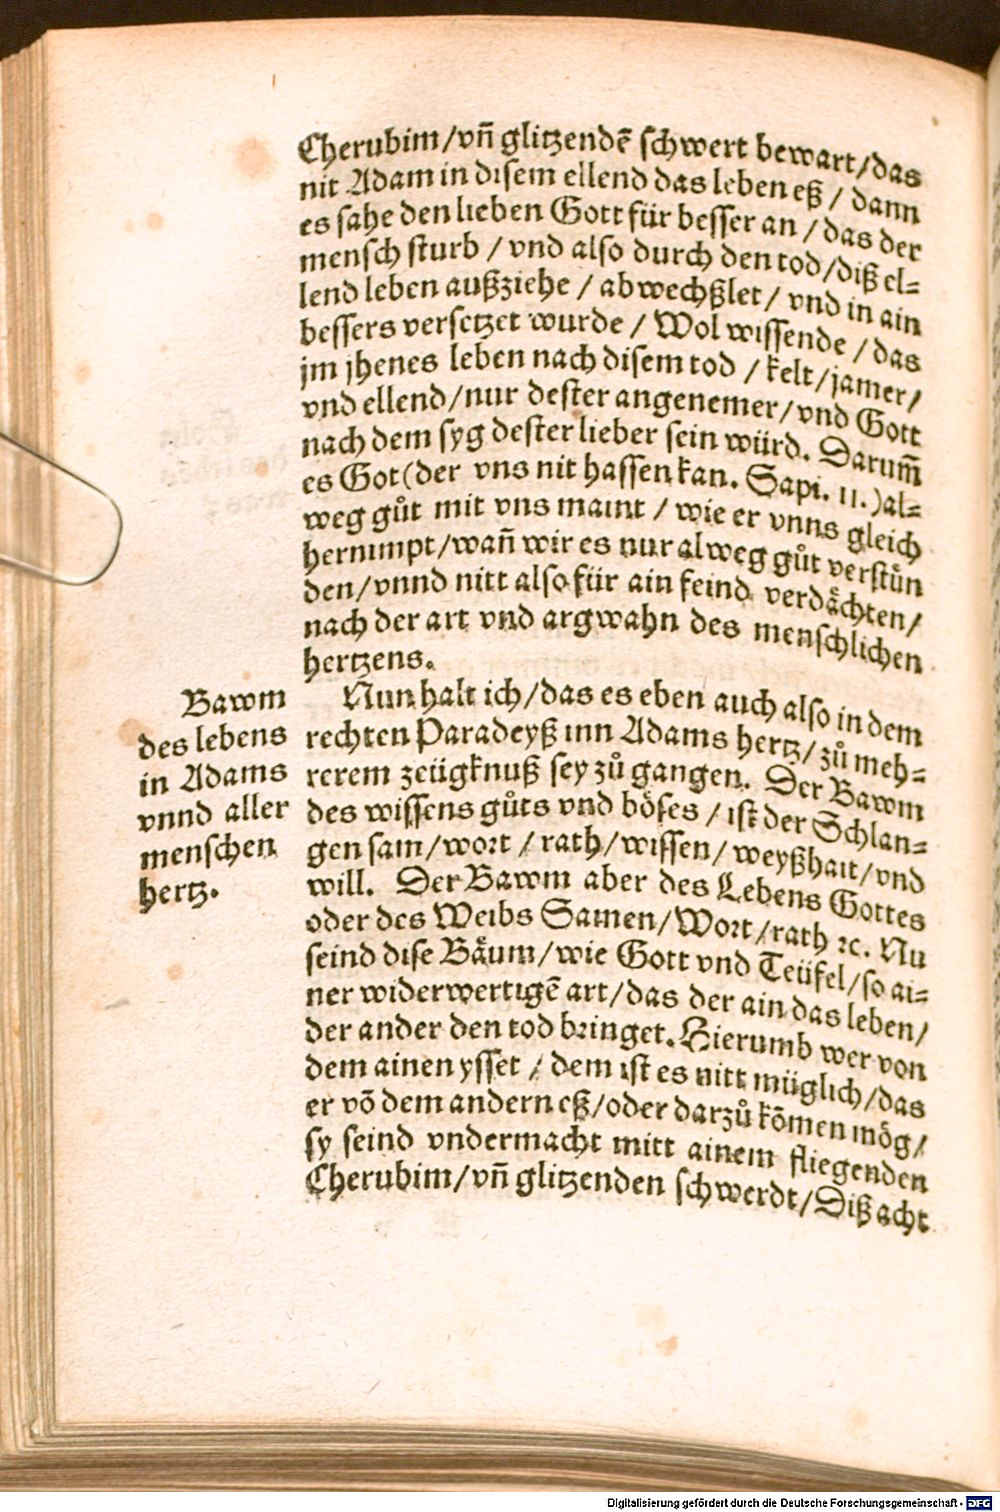 Cherubim/vn̄ glitzendē schwert bewart/das
nit Adam in disem ellend das leben eß / dann
es sahe den lieben Gott für besser an / das der
mensch sturb / vnd also durch den tod/diß el⸗
lend leben außziehe / abwechßlet/ vnd in ain
bessers versetzet wurde / Wol wissende / das
jm jhenes leben nach disem tod / kelt/jamer/
vnd ellend/nur dester angenemer/vnd Gott
nach dem syg dester lieber sein würd. Darum̄
es Got(der vns nit hassen kan. Sapi. 11.)al⸗
weg gůt mit vns maint / wie er vnns gleich
hernimpt/wan̄ wir es nur alweg gůt verstůn
den/vnnd nitt also für ain feind verdåchten/
nach der art vnd argwahn des menschlichen
hertzens.
Bawm
des lebens
in Adams
vnnd aller
menschen
hertz.
Nun halt ich/das es eben auch also in dem
rechten Paradeyß inn Adams hertz/zů meh⸗
rerem zeügknuß sey zů gangen. Der Bawm
des wissens gůts vnd böses / ist der Schlan⸗
gen sam/wort / rath/wissen/weyßhait/vnd
will. Der Bawm aber des Lebens Gottes
oder des Weibs Samen/Wort/rath ꝛc. Nu
seind dise Båum/wie Gott vnd Teüfel/so ai⸗
ner widerwertigē art/das der ain das leben/
der ander den tod bringet. Hierumb wer von
dem ainen ysset / dem ist es nitt müglich/das
er vō dem andern eß/oder darzů kōmen mög/
sy seind vndermacht mitt ainem fliegenden
Cherubim/vn̄ glitzenden schwerdt/Diß acht
Digitalisierung gefördert durch die Deutsche Forschungsgemeinschaft - DFG